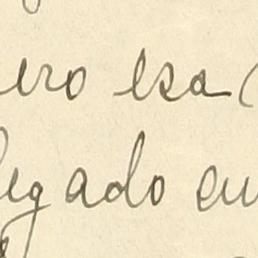 ero esa (
legado en